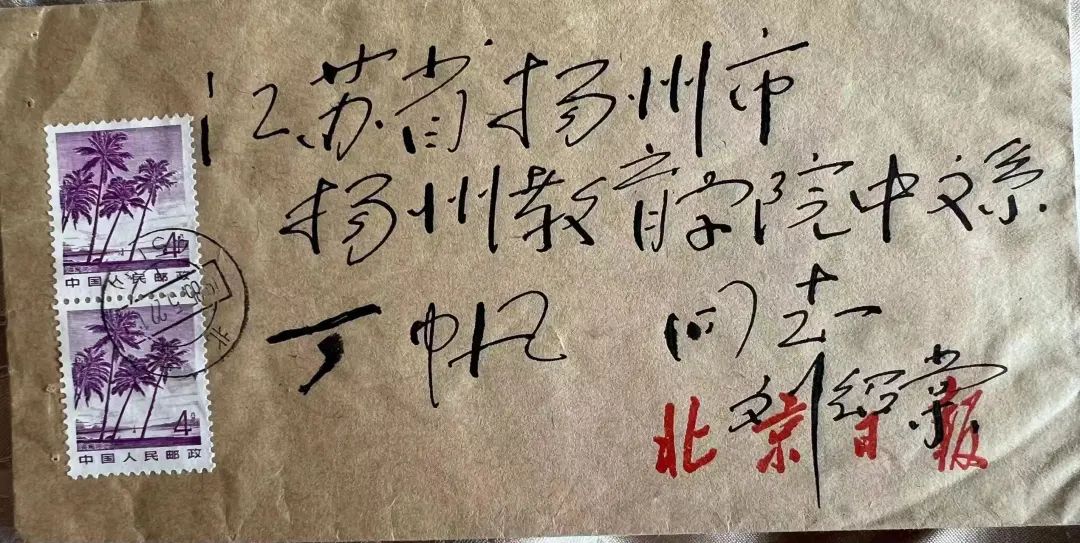 江苏省扬州市
扬州教育学院中文系
丁帆 同志
刘绍棠
北京日报
4分
中国人民邮政
4分
中国人民邮政
北